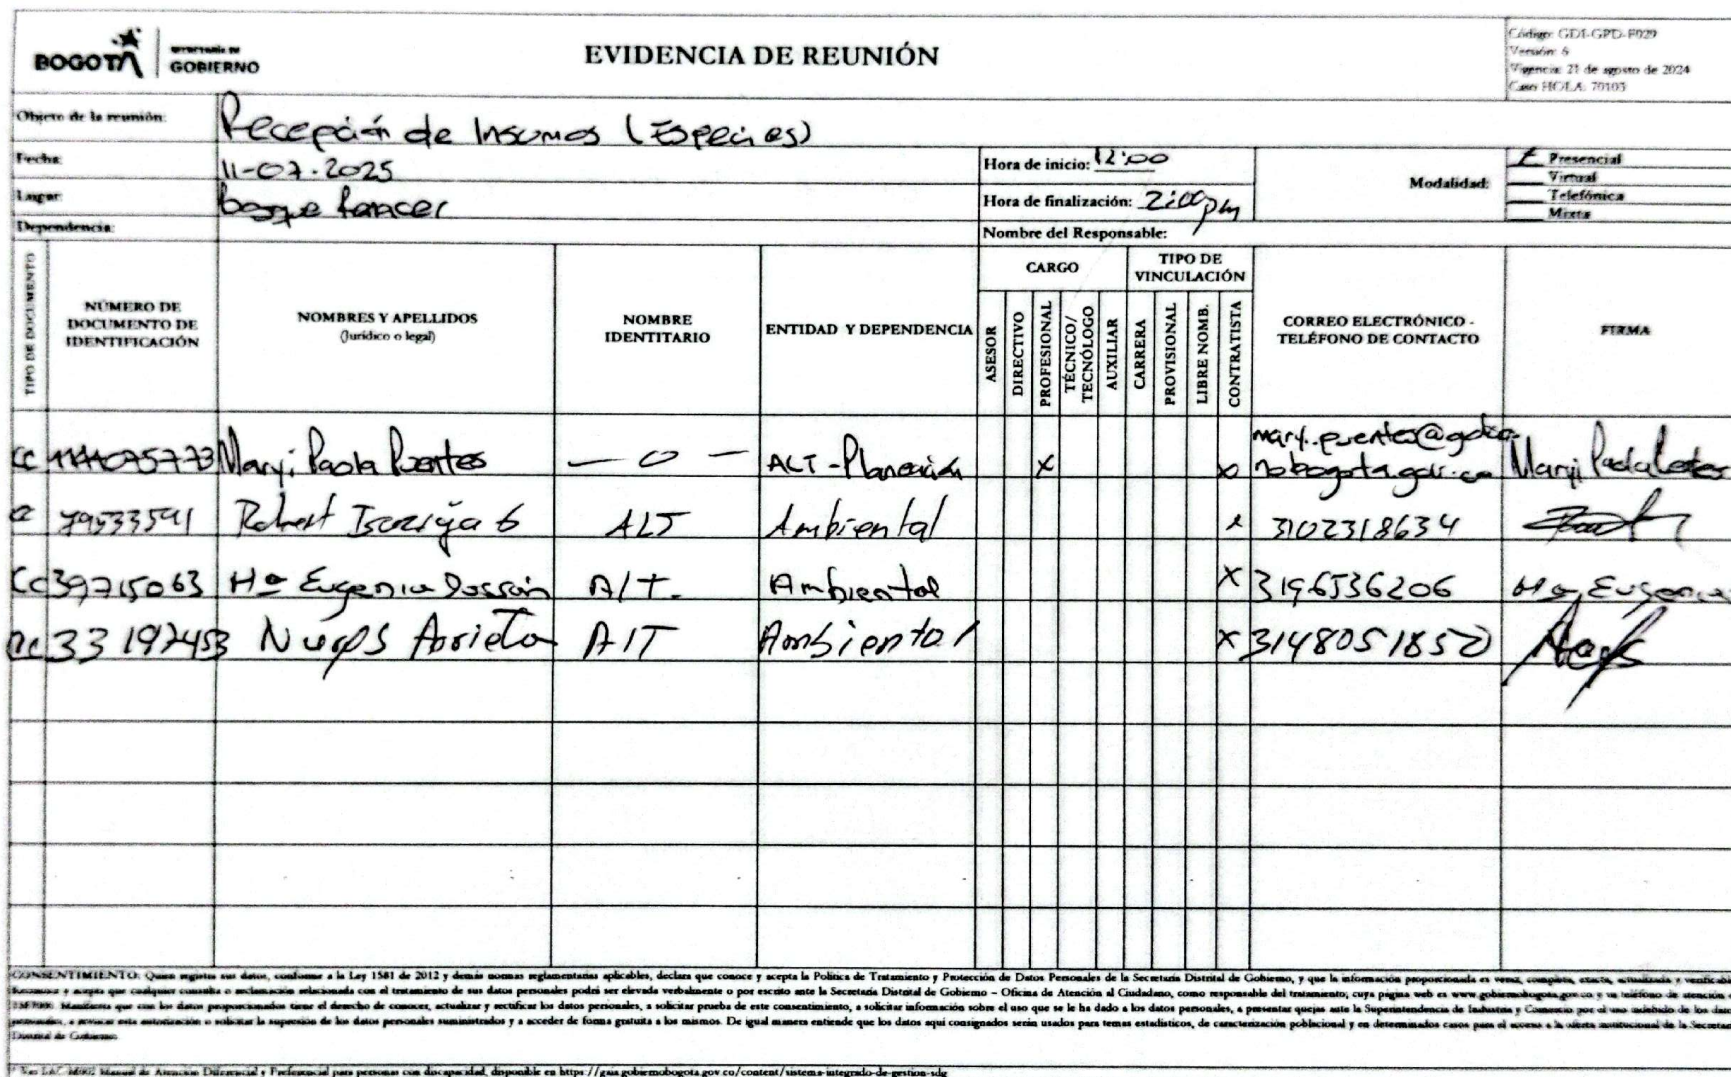 BOGOTÁ
SECRETARÍA DE
GOBIERNO
EVIDENCIA DE REUNIÓN
Código: GDI-GPD-F029
Versión: 6
Vigencia: 21 de agosto de 2024
Caso HOLA: 70103
Objeto de la reunión: Recepción de Insumos (Especies)
Fecha: 11-07-2025
Hora de inicio: 12:00
Modalidad:
Presencial
Virtual
Telefónica
Mixta
Lugar: bosque Renacer
Hora de finalización: 2:00pm
Dependencia:
Nombre del Responsable:
TIPO DE DOCUMENTO
NÚMERO DE DOCUMENTO DE IDENTIFICACIÓN
NOMBRES Y APELLIDOS
(Jurídico o legal)
NOMBRE IDENTITARIO
ENTIDAD Y DEPENDENCIA
CARGO
ASESOR
DIRECTIVO
PROFESIONAL
TÉCNICO/ TECNÓLOGO
AUXILIAR
TIPO DE VINCULACIÓN
CARRERA
PROVISIONAL
LIBRE NOMB.
CONTRATISTA
CORREO ELECTRÓNICO - TELÉFONO DE CONTACTO
FIRMA
CC Maryi Paola Puentes — 0 — ALT-Planeación x x
79533591 Robert ALT Ambiental x 3102318634
CC 39715063 Mª Eugenia A/T. Ambiental X 3196536206 Mª Eugenia
33197453 Arrieta A/T Ambiental X 3148051852
CONSENTIMIENTO: Quien registra sus datos, conforme a la Ley 1581 de 2012 y demás normas reglamentarias aplicables, declara que conoce y acepta la Política de Tratamiento y Protección de Datos Personales de la Secretaría Distrital de Gobierno, y que la información proporcionada es veraz, completa, exacta, actualizada y verificable
Reconozco y acepta que cualquier consulta o reclamación relacionada con el tratamiento de sus datos personales podrá ser elevada verbalmente o por escrito ante la Secretaría Distrital de Gobierno – Oficina de Atención al Ciudadano, como responsable del tratamiento; cuya página web es www.gobiernobogota.gov.co y su teléfono de atención
Manifiesta que con los datos proporcionados tiene el derecho de conocer, actualizar y rectificar los datos personales, a solicitar prueba de este consentimiento, a solicitar información sobre el uso que se le ha dado a los datos personales, a presentar quejas ante la Superintendencia de Industria y Comercio por el uso indebido de los datos
personales, a revocar esta autorización o solicitar la supresión de los datos personales suministrados y a acceder de forma gratuita a los mismos. De igual manera entiende que los datos aquí consignados serán usados para temas estadísticos, de caracterización poblacional y en determinados casos para el acceso a la oferta institucional de la Secretaría
Distrital de Gobierno.
Manual de Atención Diferencial y Preferencial para personas con discapacidad, disponible en https://gaia.gobiernobogota.gov.co/content/sistema-integrado-de-gestion-sdg